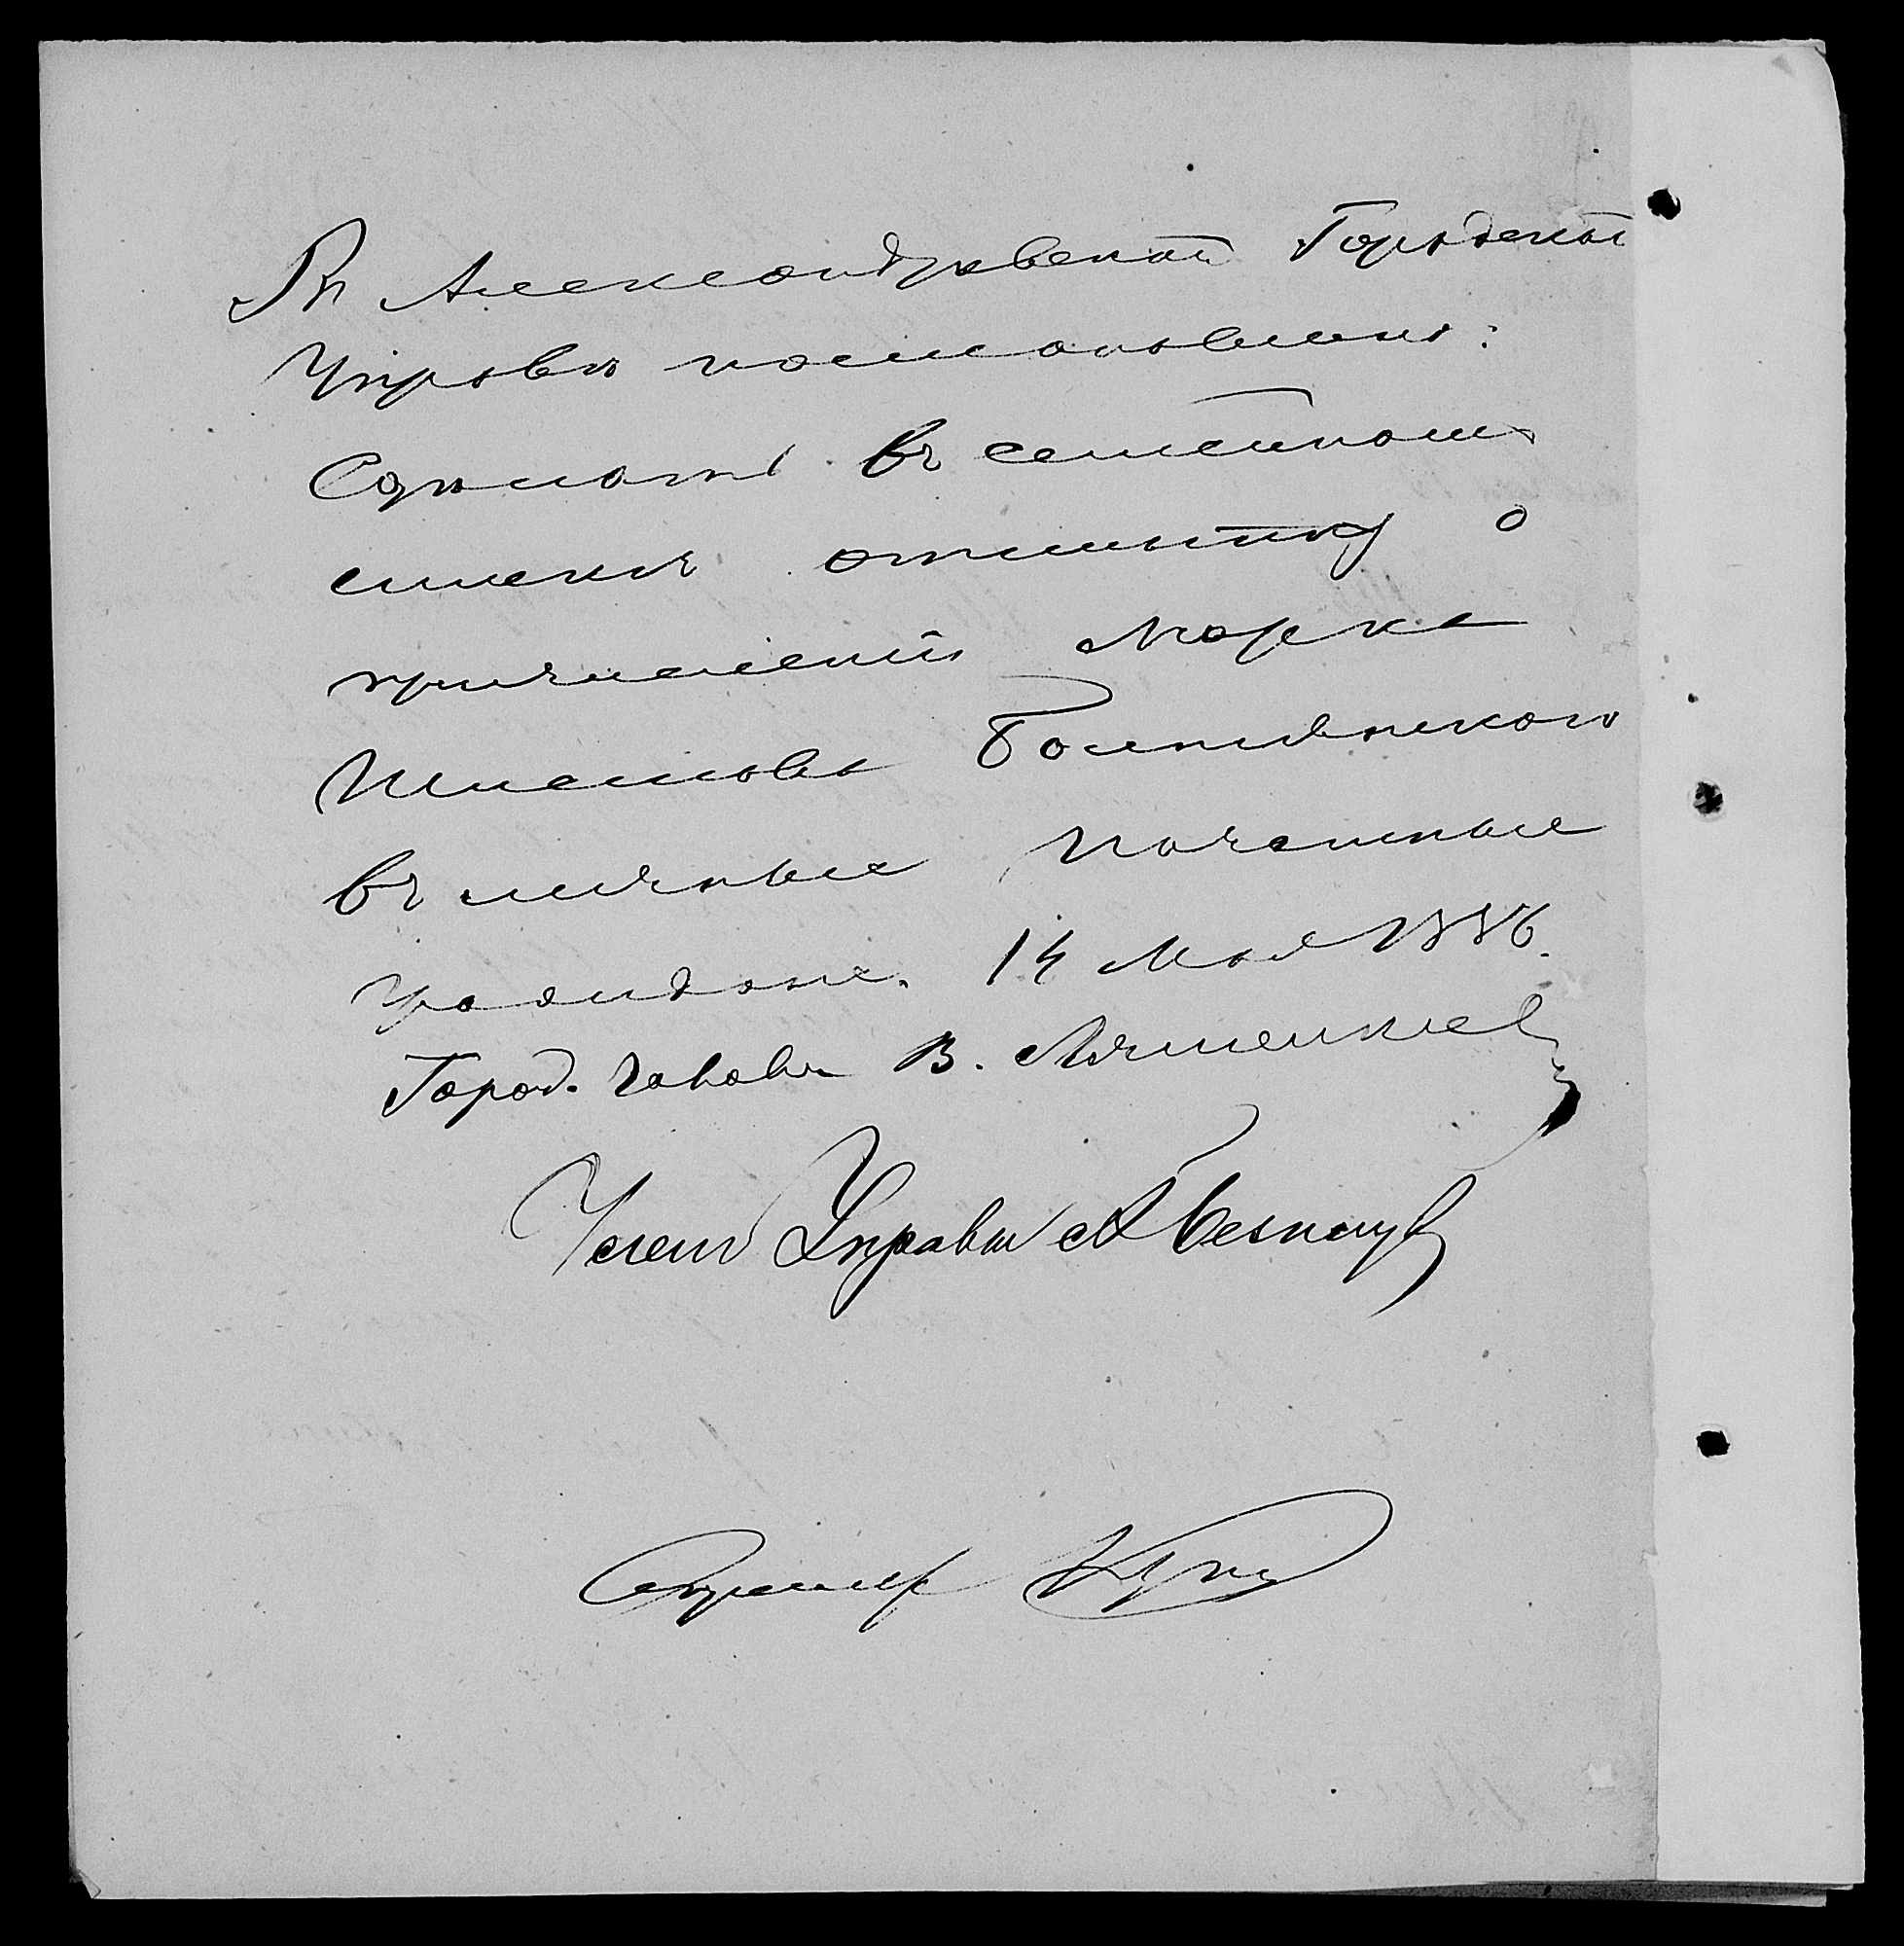 Въ Александровской Городской
Управѣ постановлено:
Сдѣлать въ семейномъ
спискѣ отмѣтку о
причисленіи Марка
Шлемова Болтянскаго
въ личные почетные
граждане. 14 Мая 1886.
Город. Голова В. Лященко
Членъ Управы А
Секретарь